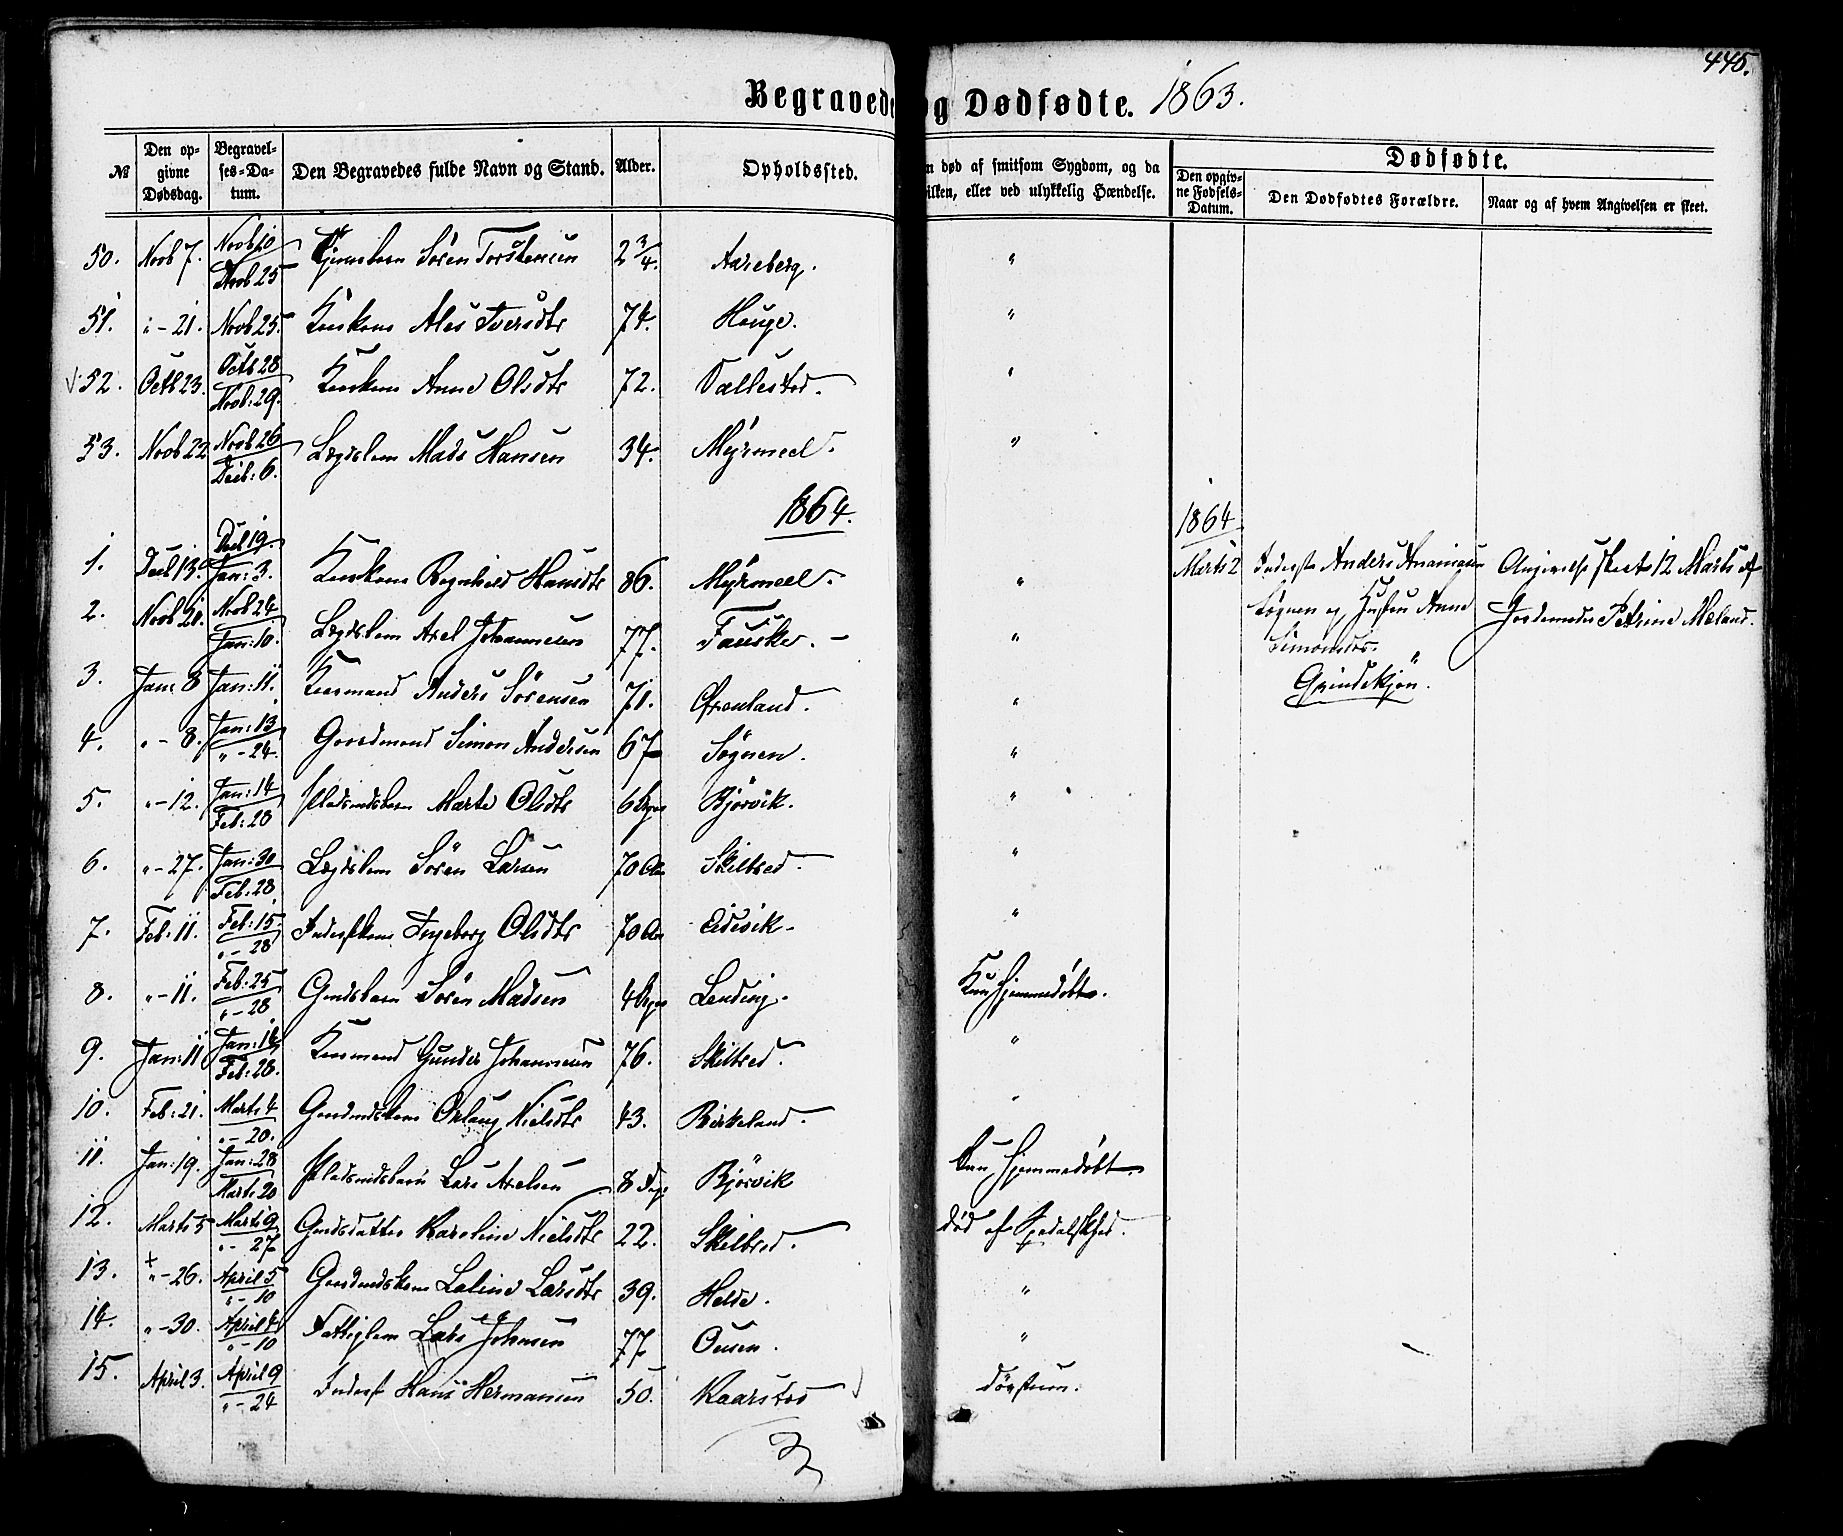 445.
Begravede og Dødfødte. 1863.
№ Den opgivne Dødsdag. Begravelses-Datum. Den Begravedes fulde Navn og Stand. Alder. Opholdssted. død af smitsom Sygdom, og da hvilken, eller ved ulykkelig Hændelse. Dødfødte.
Den opgivne Fødsels-Datum. Den Dødfødtes Forældre. Naar og af hvem Angivelsen er skeet.
50. Novb 7. Novb 10 Novb 25 Sören Torstensen 2 3/4. Aareberg. "
51. " - 21. Novb 25. Ales Iversdtr 74. Houge. "
52. Octb 23. Octb 28 Novb: 29. Anne Olsdtr 72. Vallestad. "
53. Novb 22 Novb 26 Decb: 6. Lægdslem Mads Hansen 34. Myrmeel. "
1864.
1864
1. Decb 13. Decb 19. Jan: 3. Hansdtr 86. Myrmeel. "
Marts 2 Inderst Anders Ananiasen Angivelse skeet 12 Marts af
2. Novb 20. Novb 24 Jan: 10. Lægdslem Axel Johannesen 77. Fauske. - "
Sögnen og Hustru Anne Jordemoder Petrine Meland.
Simonsdtr. "
3. Jan: 8 Jan: 11. Anders Sörensen 71. Grönland. "
Grindekjøn.
4. " - 8. Jan: 13 " - 24. Gaardmand Simon Andersen 67 Sögnen. "
5. " - 12. Jan: 14 Feb: 28 Pladsmdsbarn Marte Olsdtr 6 Björvik. "
6. " - 27. Jan: 30 Feb: 28. Lægdslem Sören Larsen 70 Aar Skilbred. "
7. Feb: 11. Feb: 15. " - 28 Inderstkone Ingeborg Olsdtr 70 Aar Eidsvik. "
8. " - 11. Feb: 25 " - 28. Sören Madsen 4 Lending. Kun hjemmedøbt.
9. Jan: 11 Jan: 16 Feb: 28. Gunder Johannesen 76. Skilbred. "
10. Feb: 21. Marts 4 " - 20. Gaardmdskone Nielsdtr 43. Birkeland. "
11. Jan: 19. Jan: 28 Marts 20 Pladsmdsbarn Lars Axelsen 8 Dage Björvik Kun hjemmedøbt.
12. Marts 5 Marts 9 " - 27 Gmdsdatter Karoline Nielsdtr 22. Skilbred. død af Spedalskhed.
13. " - 26. April 5 " - 10 Gaardmdskone Laline Larsdtr 39. Helde. "
14. " - 30. April 4 " - 10 Fattiglem Lars Johnsen 77 Ousen. "
15. April 3. April 9 " - 24 Inderst Hans Hermansen 50. Kaarstad